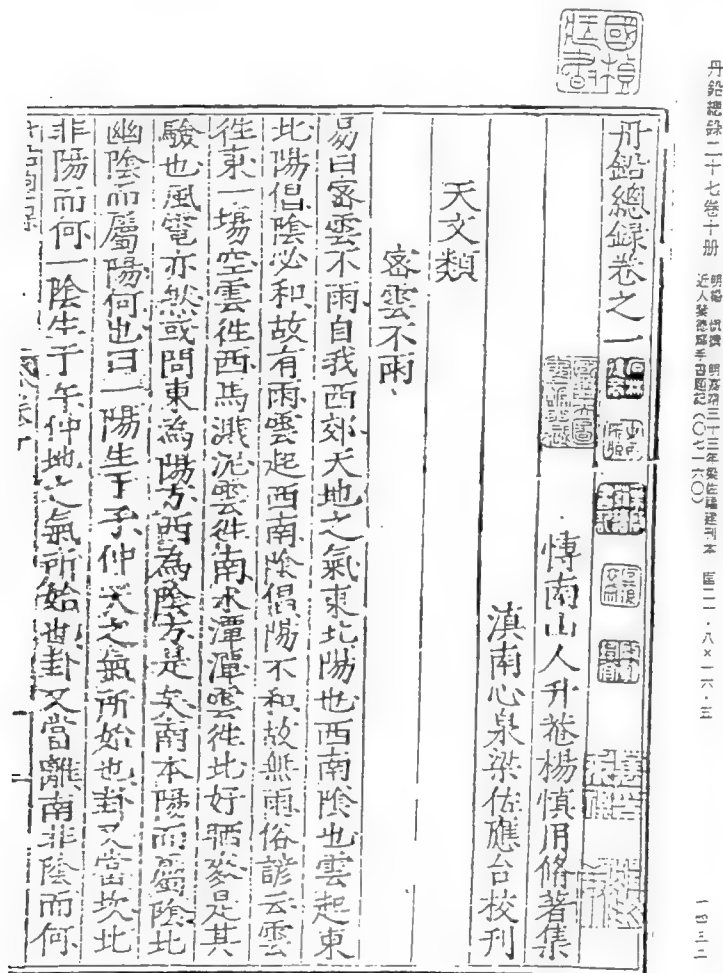 丹鉛總錄二十七卷十册
明楊慎撰 明嘉靖三十三年梁佐福建刊本 匡二一·八×一六·三
近人 手書題記(〇七一六〇)
一四三二
丹鉛總録卷之一
博南山人升菴楊慎用脩著集
滇南心泉梁佐應台校刊
天文類
密雲不雨
易曰密雲不雨自我西郊天地之氣東北陽也西南陰也雲起東
北陽倡陰必和故有雨雲起西南陰倡陽不和故無雨俗諺云雲
徃東一塲空雲徃西馬濺泥雲徃南水潭潭雲徃北好晒麥是其
驗也風電亦然或問東為陽方西為陰方是矣南本陽而屬陰北
幽陰而屬陽何也曰一陽生于子仲天之氣所始也卦又當坎北
非陽而何一陰生于午仲地之氣所始也卦又當離南非陰而何